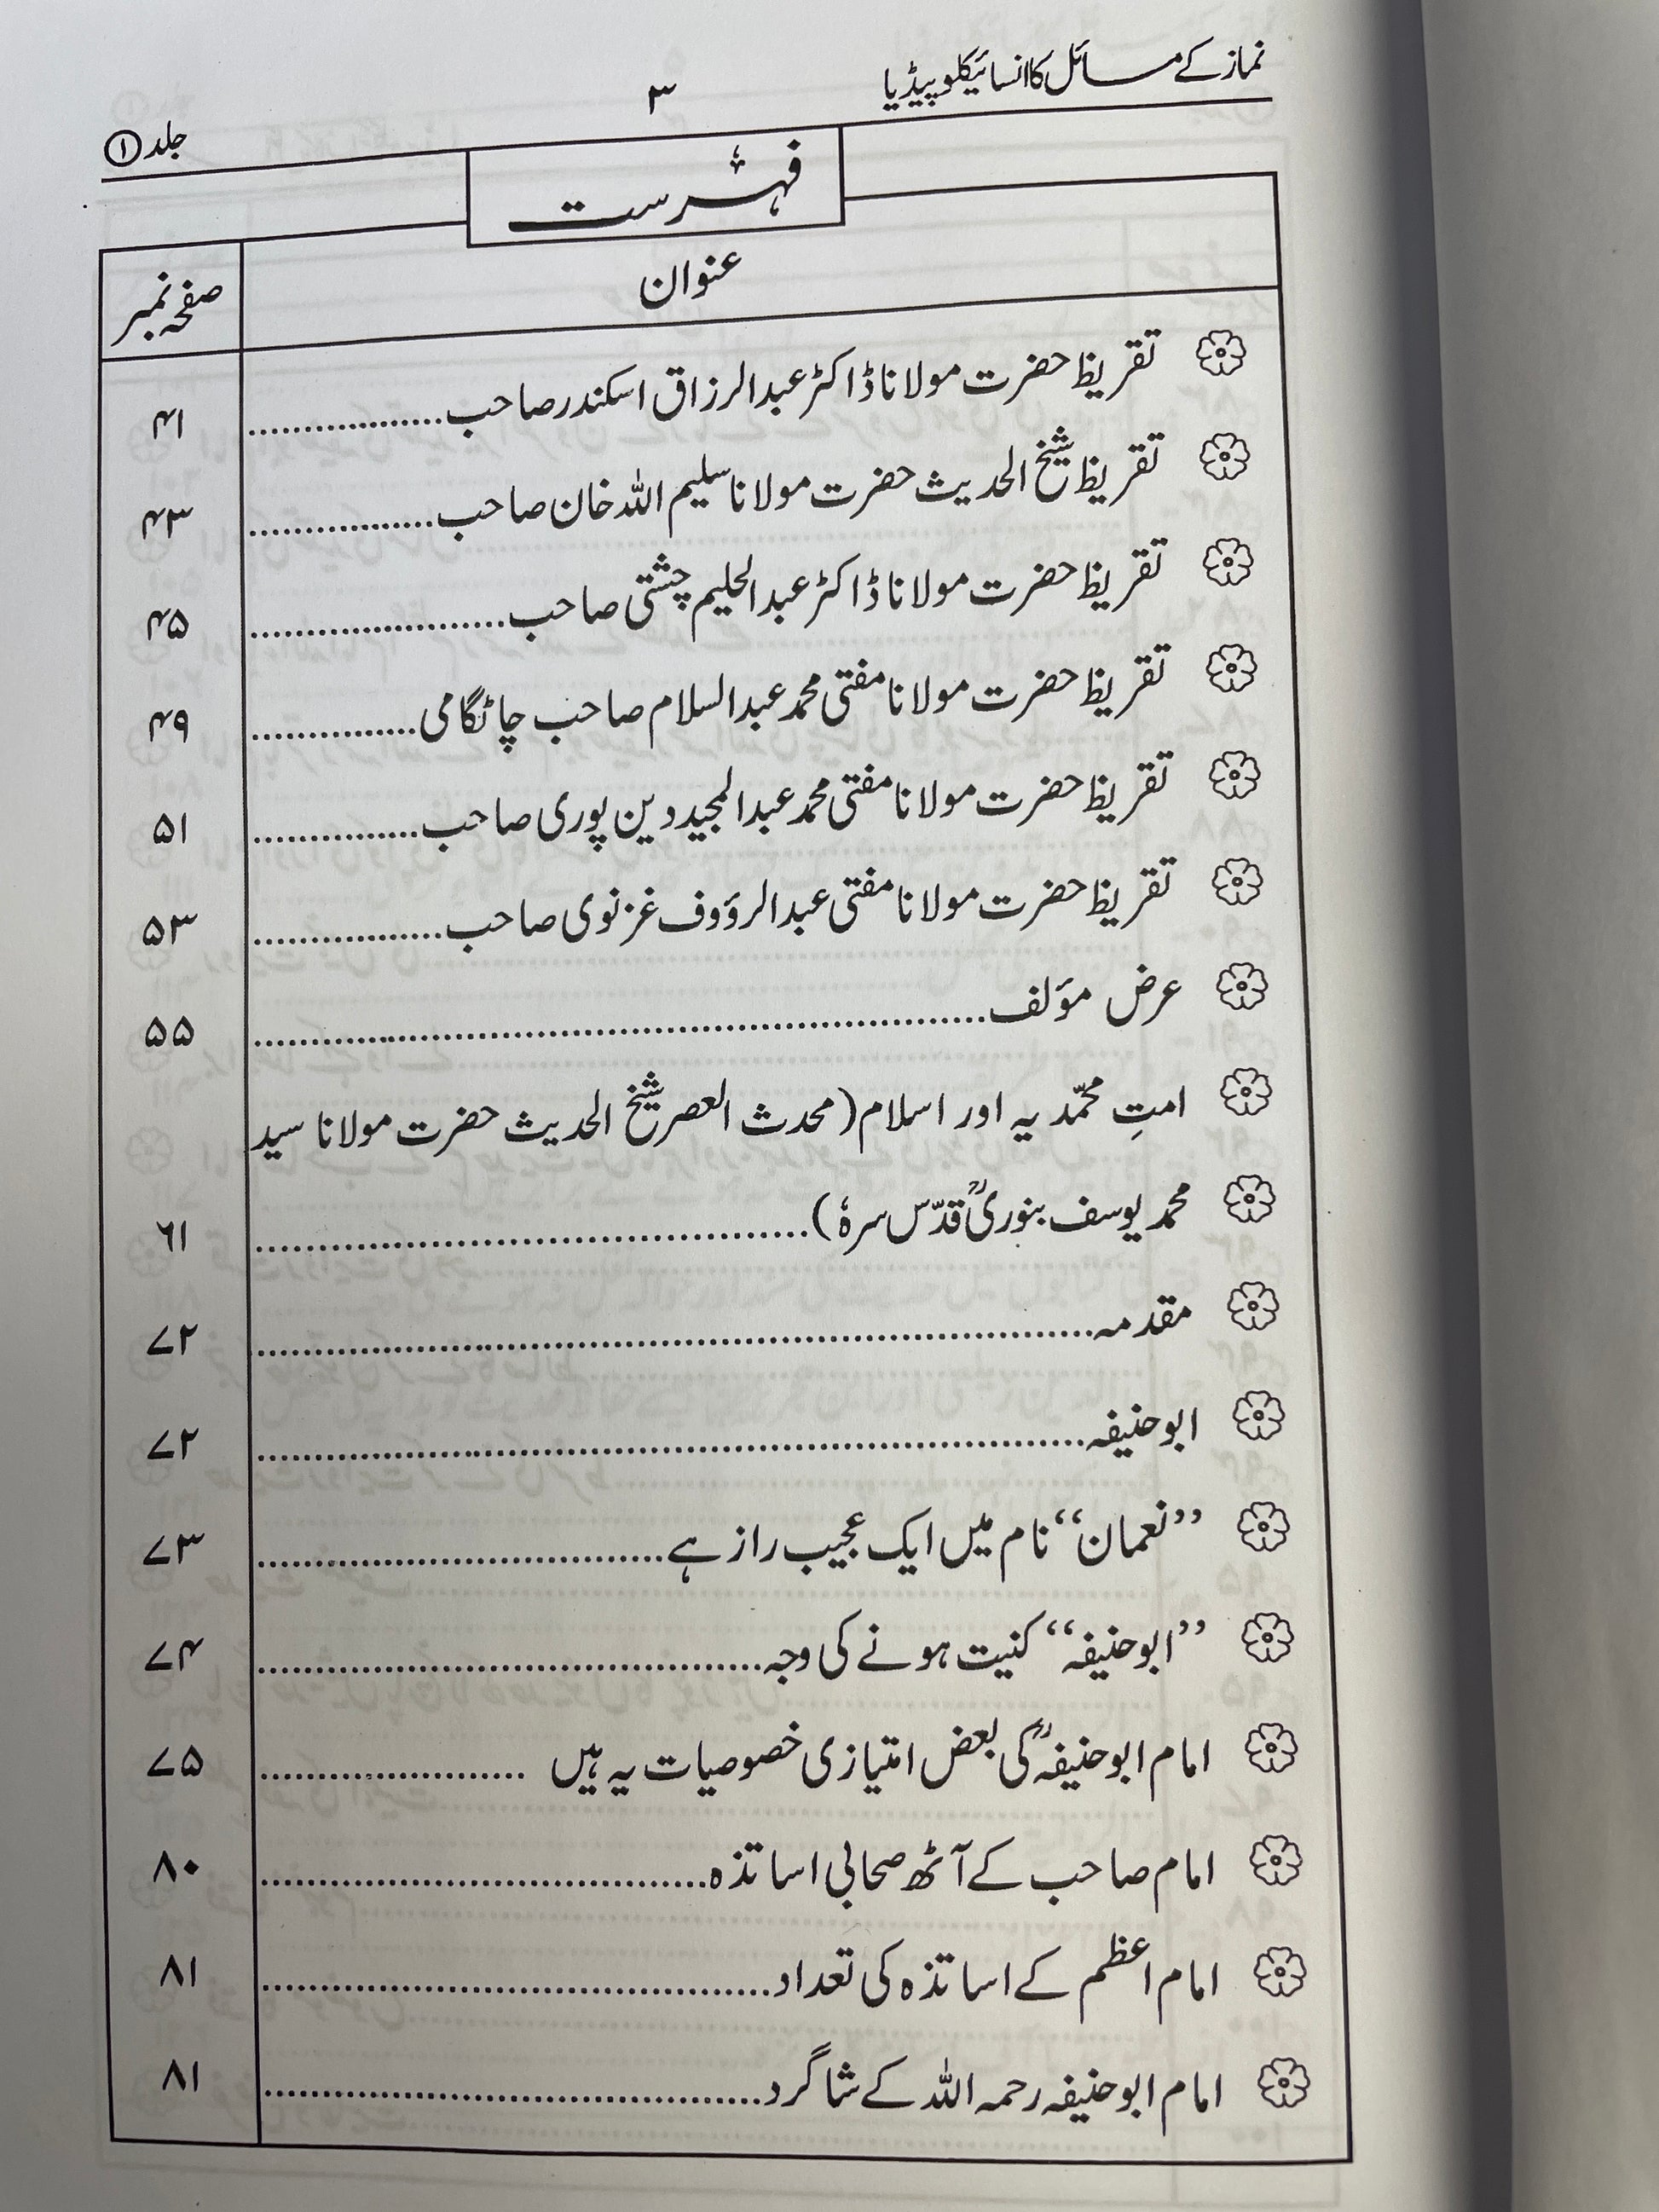 نماز کے مسائل کا انسائیکلوپیڈیا
۳
جلد ①
فہرست
عنوان
صفحہ نمبر
تقریظ حضرت مولانا ڈاکٹر عبدالرزاق اسکندر صاحب.................. ۴۱
تقریظ شیخ الحدیث حضرت مولانا سلیم اللہ خان صاحب.................. ۴۳
تقریظ حضرت مولانا ڈاکٹر عبدالحلیم چشتی صاحب........................ ۴۵
تقریظ حضرت مولانا مفتی محمد عبدالسلام صاحب چاٹگامی................ ۴۹
تقریظ حضرت مولانا مفتی محمد عبدالمجید دین پوری صاحب................ ۵۱
تقریظ حضرت مولانا مفتی عبدالرؤوف غزنوی صاحب.................. ۵۳
عرض مؤلف.................................................................. ۵۵
امتِ محمّدیہ اور اسلام (محدث العصر شیخ الحدیث حضرت مولانا سید
محمد یوسف بنوریؒ قدّس سرہٗ)................................................ ۶۱
مقدمہ.......................................................................... ۷۲
ابوحنیفہ........................................................................ ۷۲
’’نعمان‘‘ نام میں ایک عجیب راز ہے...................................... ۷۳
’’ابوحنیفہ‘‘ کنیت ہونے کی وجہ.............................................. ۷۴
امام ابوحنیفہؒ کی بعض امتیازی خصوصیات یہ ہیں ........................ ۷۵
امام صاحب کے آٹھ صحابی اساتذہ........................................ ۸۰
امام اعظم کے اساتذہ کی تعداد.............................................. ۸۱
امام ابوحنیفہ رحمہ اللہ کے شاگرد.............................................. ۸۱